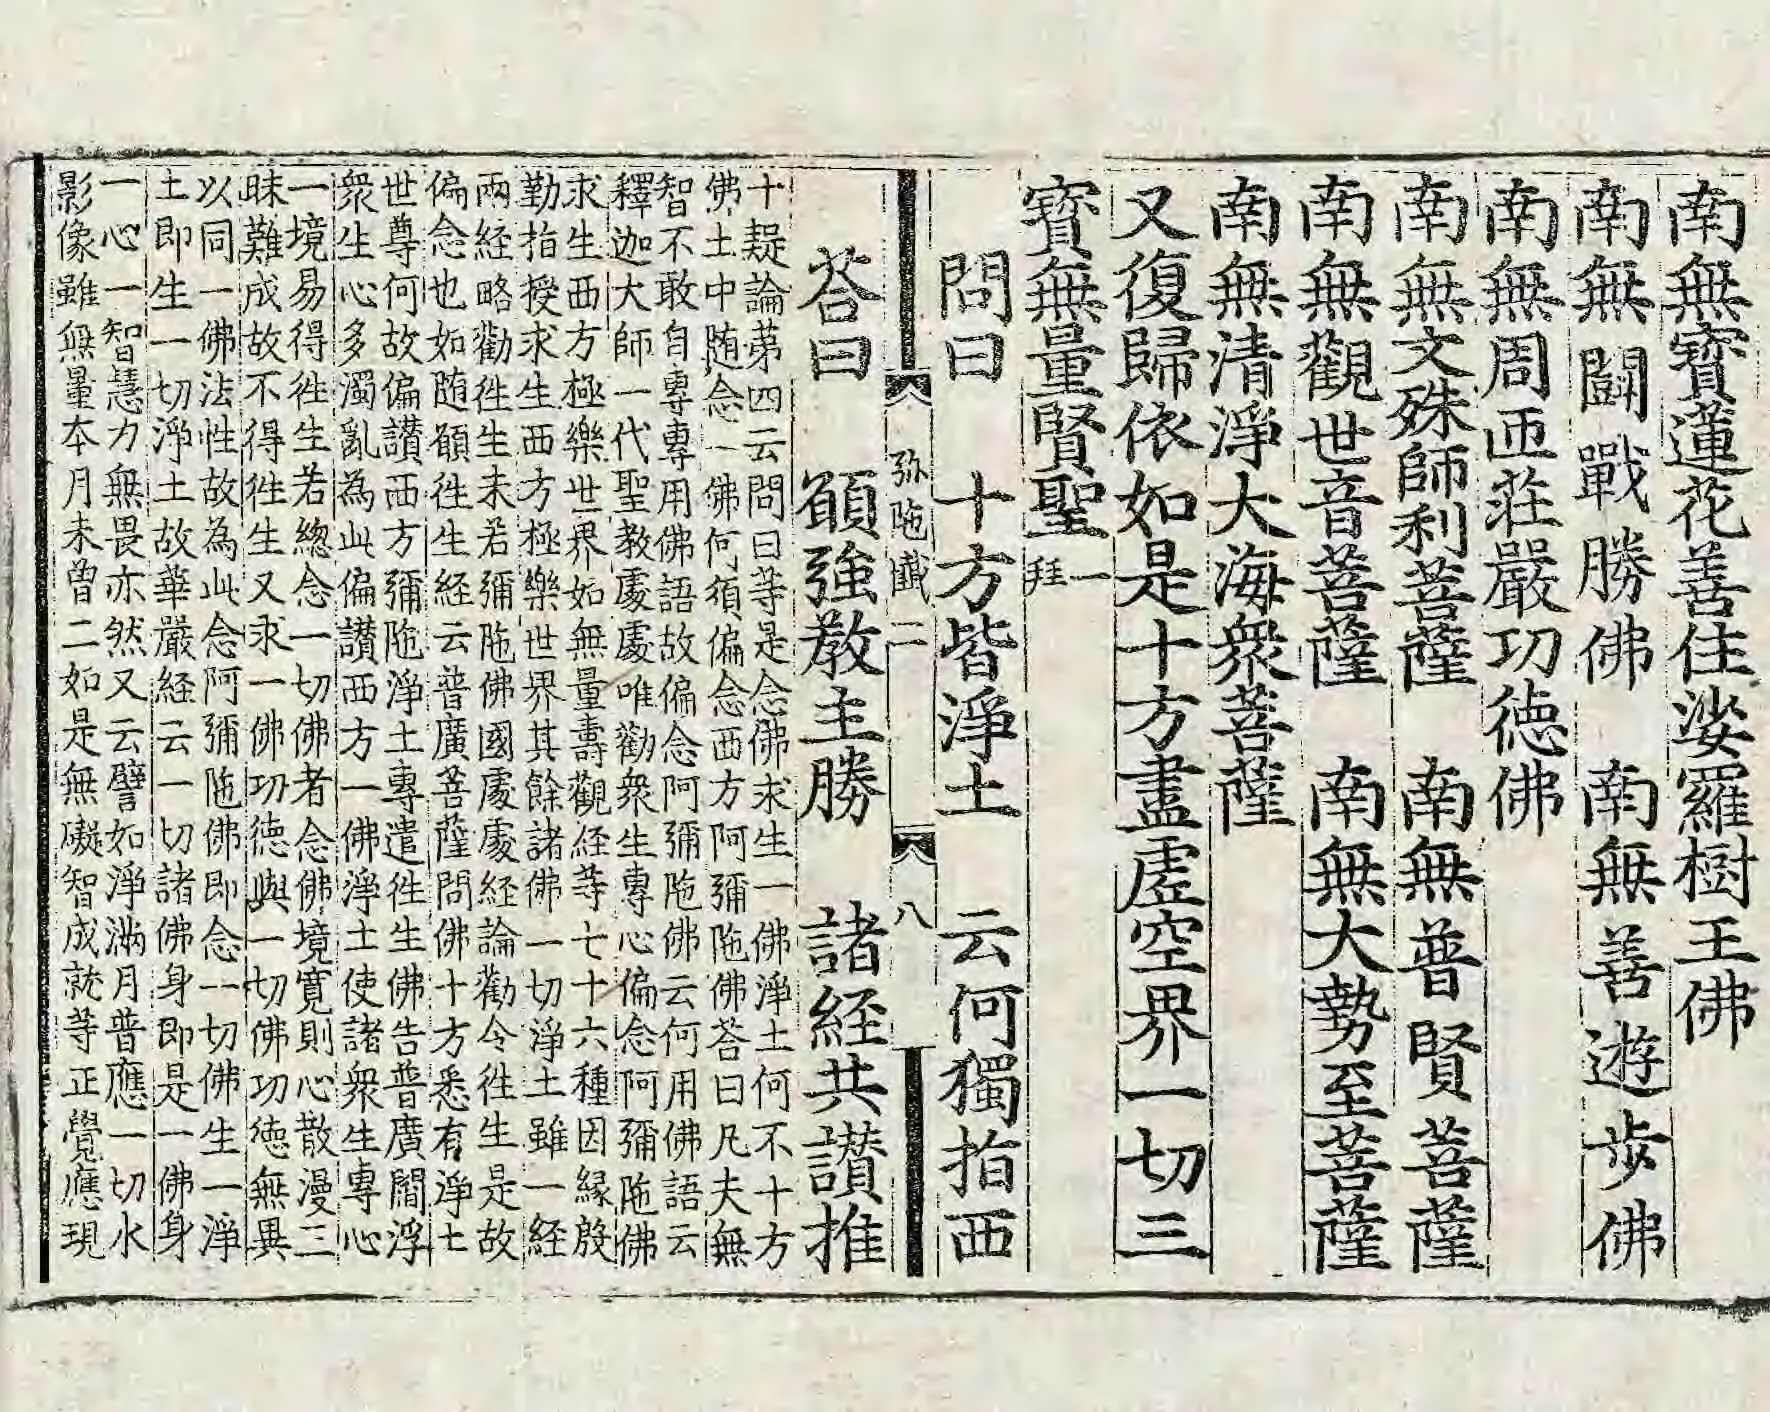 南無寶蓮花善住娑羅樹王佛
南無鬪戰勝佛 南無善遊步佛
南無周迊莊嚴功徳佛
南無文殊師利菩薩 南無普賢菩薩
南無觀世音菩薩 南無大勢至菩薩
南無清淨大海衆菩薩
又復歸依如是十方盡虛空界一切三
寶無量賢聖一拜
問曰 十方皆淨土 云何獨指西
弥陁懴二 八
荅曰 願強教主勝 諸経共讃推
十疑論苐四云問曰等是念佛求生一佛淨土何不十方
佛土中随念一佛何須偏念西方阿彌陁佛荅曰凡夫無
智不敢自專專用佛語故偏念阿彌陁佛云何用佛語云
釋迦大師一代聖教處處唯勸衆生專心偏念阿彌陁佛
求生西方極樂世界如無量壽觀経等七十六種因縁殷
勤指授求生西方極樂世界其餘諸佛一切淨土雖一経
兩経略勸徃生未若彌陁佛國處處経論勸令徃生是故
偏念也如随願徃生経云普廣菩薩問佛十方悉有淨土
世尊何故偏讃西方彌陁淨土專遣徃生佛告普廣閻浮
衆生心多濁亂為此偏讃西方一佛淨土使諸衆生專心
一境易得徃生若總念一切佛者念佛境寬則心散漫三
昧難成故不得徃生又求一佛功徳與一切佛功徳無異
以同一佛法性故為此念阿彌陁佛即念一切佛生一淨
土即生一切淨土故華嚴経云一切諸佛身即是一佛身
一心一智慧力無畏亦然又云譬如淨滿月普應一切水
影像雖無量本月未曾二如是無礙智成就等正覺應現